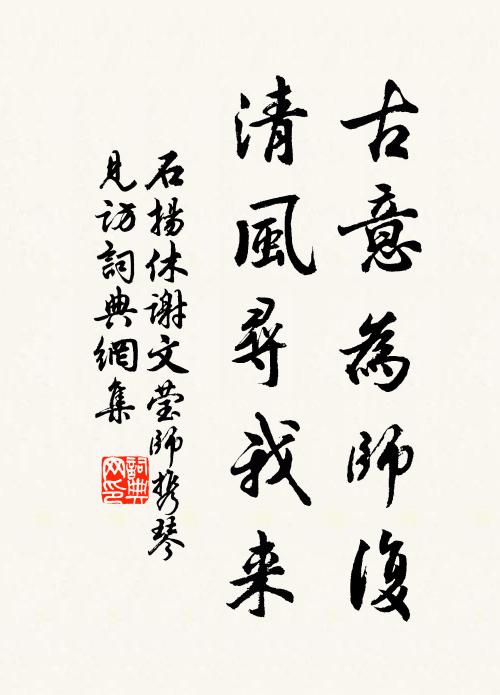 古意為師復
清風尋我来
石揚休谢文莹師携琴
見访詞典網集
詞典
网印